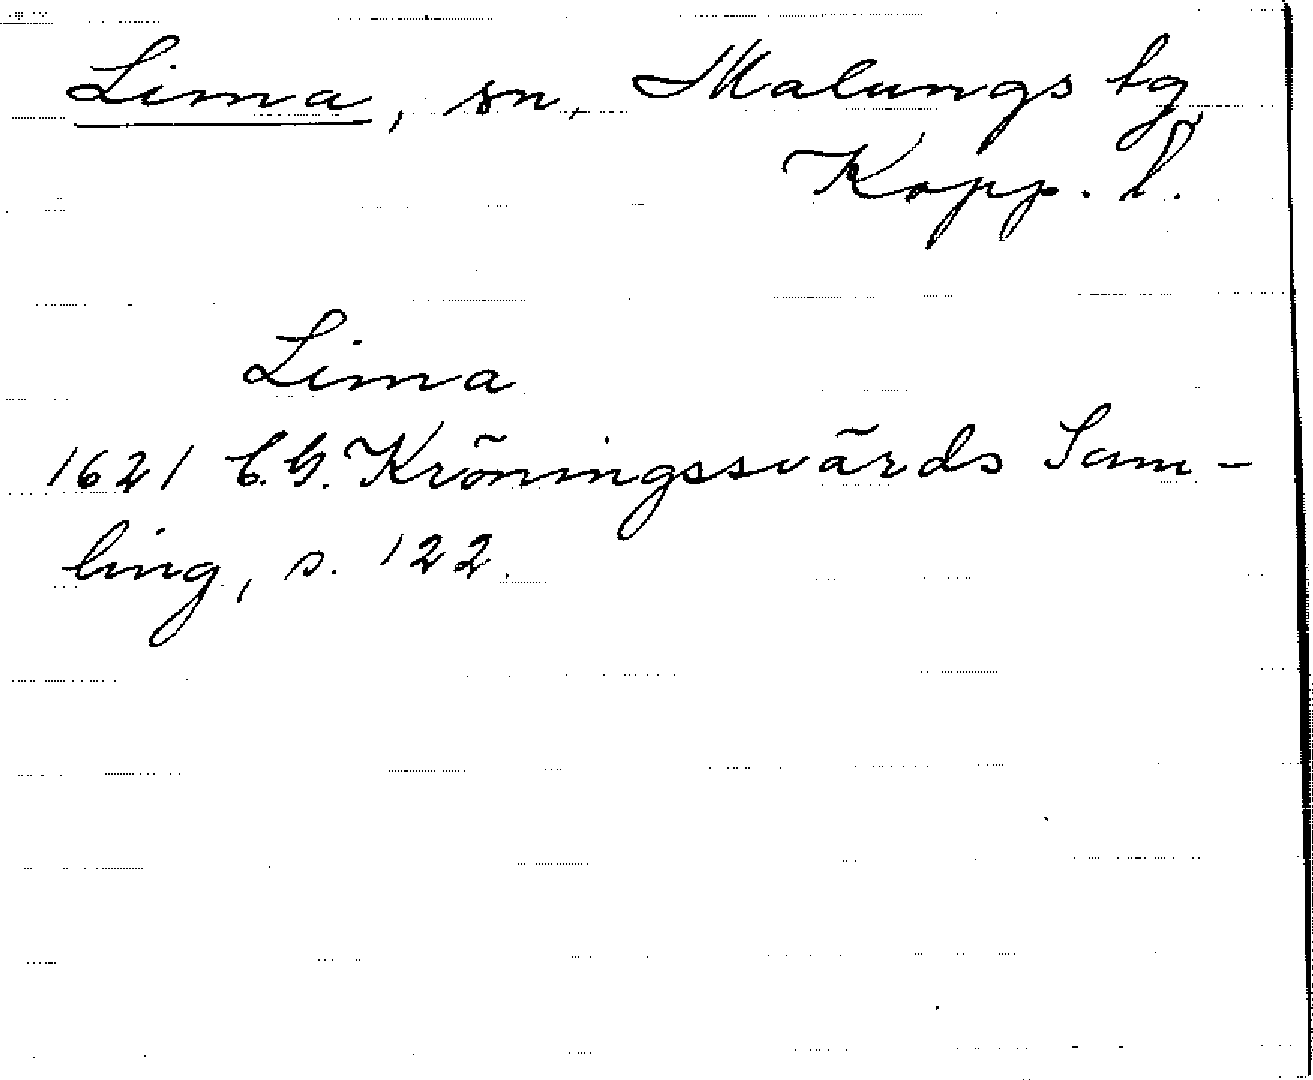 Lima, sn, Malungs tg
Kopp. l.
Lima
1621 C.G. Kröningssvärds Sam-
ling, s. 122.